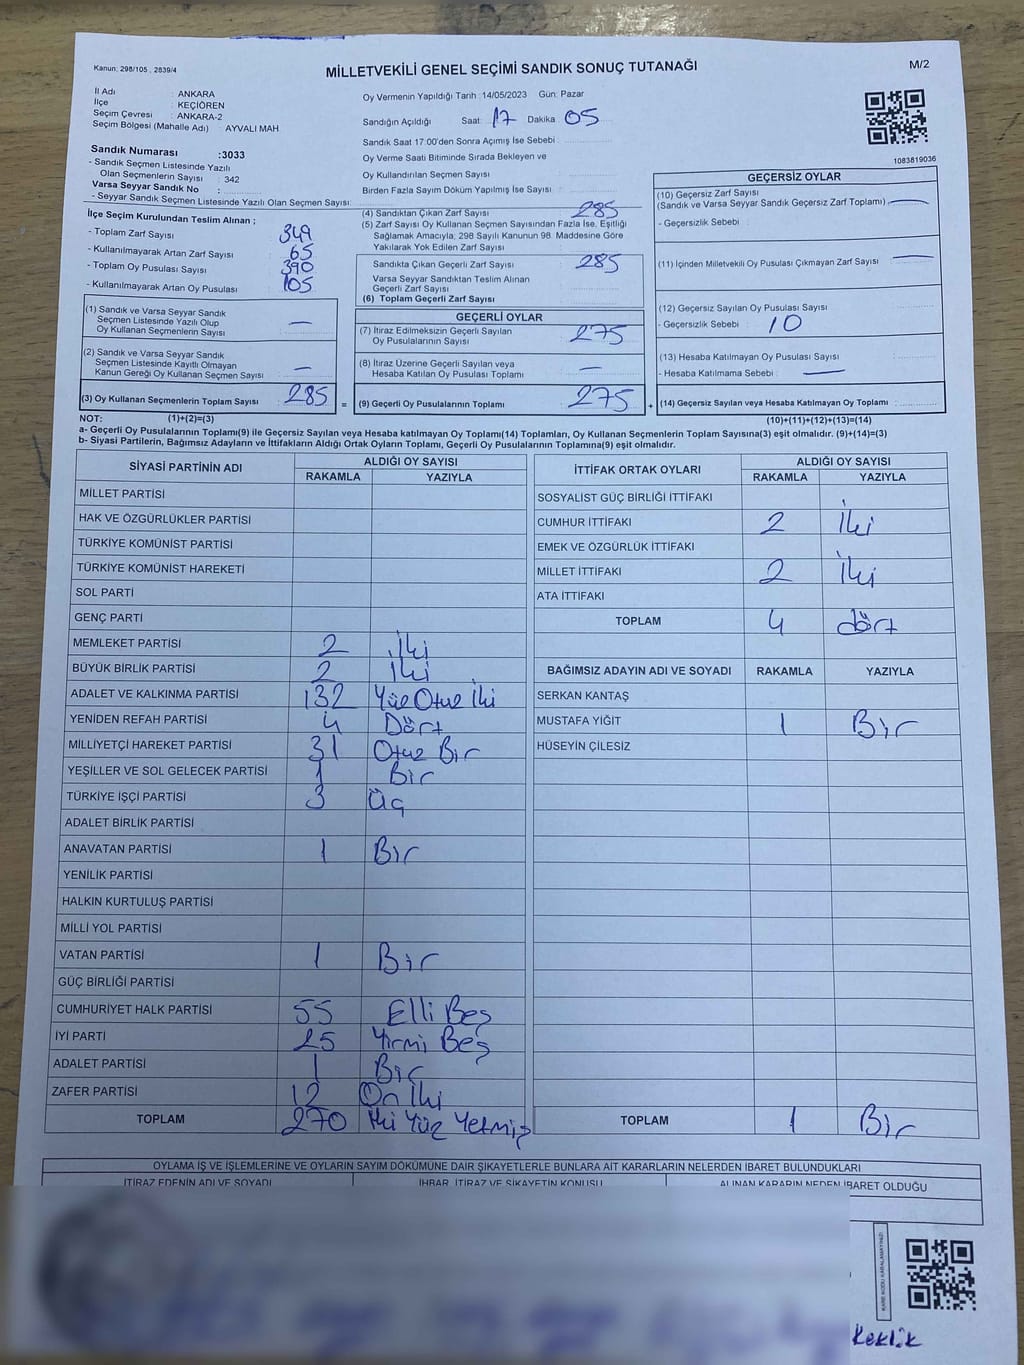 Kanun: 298/105 , 2839/4
MİLLETVEKİLİ GENEL SEÇİMİ SANDIK SONUÇ TUTANAĞI
M/2
İl Adı : ANKARA
İlçe : KEÇİÖREN
Seçim Çevresi : ANKARA-2
Seçim Bölgesi (Mahalle Adı) : AYVALI MAH
Oy Vermenin Yapıldığı Tarih :14/05/2023 Gün: Pazar
Sandığın Açıldığı Saat: 17 Dakika 05
Sandık Saat 17:00'den Sonra Açımış İse Sebebi :
Oy Verme Saati Bitiminde Sırada Bekleyen ve
Oy Kullandırılan Seçmen Sayısı :
Birden Fazla Sayım Döküm Yapılmış İse Sayısı :
1083819036
Sandık Numarası :3033
- Sandık Seçmen Listesinde Yazılı
Olan Seçmenlerin Sayısı : 342
Varsa Seyyar Sandık No :
- Seyyar Sandık Seçmen Listesinde Yazılı Olan Seçmen Sayısı:
İlçe Seçim Kurulundan Teslim Alınan ;
- Toplam Zarf Sayısı : 349
- Kullanılmayarak Artan Zarf Sayısı : 65
- Toplam Oy Pusulası Sayısı : 390
- Kullanılmayarak Artan Oy Pusulası : 105
(1) Sandık ve Varsa Seyyar Sandık
Seçmen Listesinde Yazılı Olup
Oy Kullanan Seçmenlerin Sayısı : —
(2) Sandık ve Varsa Seyyar Sandık
Seçmen Listesinde Kayıtlı Olmayan
Kanun Gereği Oy Kullanan Seçmen Sayısı : —
(3) Oy Kullanan Seçmenlerin Toplam Sayısı : 285 =
(4) Sandıktan Çıkan Zarf Sayısı : 285
(5) Zarf Sayısı Oy Kullanan Seçmen Sayısından Fazla İse, Eşitliği
Sağlamak Amacıyla, 298 Sayılı Kanunun 98. Maddesine Göre
Yakılarak Yok Edilen Zarf Sayısı :
Sandıkta Çıkan Geçerli Zarf Sayısı : 285
Varsa Seyyar Sandıktan Teslim Alınan
Geçerli Zarf Sayısı :
(6) Toplam Geçerli Zarf Sayısı :
GEÇERLİ OYLAR
(7) İtiraz Edilmeksizin Geçerli Sayılan
Oy Pusulalarının Sayısı : 275
(8) İtiraz Üzerine Geçerli Sayılan veya
Hesaba Katılan Oy Pusulası Toplamı : —
(9) Geçerli Oy Pusulalarının Toplamı : 275 +
GEÇERSİZ OYLAR
(10) Geçersiz Zarf Sayısı
(Sandık ve Varsa Seyyar Sandık Geçersiz Zarf Toplamı) : —
- Geçersizlik Sebebi :
(11) İçinden Milletvekili Oy Pusulası Çıkmayan Zarf Sayısı : —
(12) Geçersiz Sayılan Oy Pusulası Sayısı :
- Geçersizlik Sebebi : 10
(13) Hesaba Katılmayan Oy Pusulası Sayısı :
- Hesaba Katılmama Sebebi : —
(14) Geçersiz Sayılan veya Hesaba Katılmayan Oy Toplamı :
NOT: (1)+(2)=(3) (10)+(11)+(12)+(13)=(14)
a- Geçerli Oy Pusulalarının Toplamı(9) ile Geçersiz Sayılan veya Hesaba katılmayan Oy Toplamı(14) Toplamları, Oy Kullanan Seçmenlerin Toplam Sayısına(3) eşit olmalıdır. (9)+(14)=(3)
b- Siyasi Partilerin, Bağımsız Adayların ve İttifakların Aldığı Ortak Oyların Toplamı, Geçerli Oy Pusulalarının Toplamına(9) eşit olmalıdır.
SİYASİ PARTİNİN ADI ALDIĞI OY SAYISI
RAKAMLA YAZIYLA
MİLLET PARTİSİ
HAK VE ÖZGÜRLÜKLER PARTİSİ
TÜRKİYE KOMÜNİST PARTİSİ
TÜRKİYE KOMÜNİST HAREKETİ
SOL PARTİ
GENÇ PARTİ
MEMLEKET PARTİSİ 2 İki
BÜYÜK BİRLİK PARTİSİ 2 İki
ADALET VE KALKINMA PARTİSİ 132 Yüz Otuz İki
YENİDEN REFAH PARTİSİ 4 Dört
MİLLİYETÇİ HAREKET PARTİSİ 31 Otuz Bir
YEŞİLLER VE SOL GELECEK PARTİSİ 1 Bir
TÜRKİYE İŞÇİ PARTİSİ 3 Üç
ADALET BİRLİK PARTİSİ
ANAVATAN PARTİSİ 1 Bir
YENİLİK PARTİSİ
HALKIN KURTULUŞ PARTİSİ
MİLLİ YOL PARTİSİ
VATAN PARTİSİ 1 Bir
GÜÇ BİRLİĞİ PARTİSİ
CUMHURİYET HALK PARTİSİ 55 Elli Beş
İYİ PARTİ 25 Yirmi Beş
ADALET PARTİSİ 1 Bir
ZAFER PARTİSİ 12 On İki
TOPLAM 270 İki Yüz Yetmiş
İTTİFAK ORTAK OYLARI ALDIĞI OY SAYISI
RAKAMLA YAZIYLA
SOSYALİST GÜÇ BİRLİĞİ İTTİFAKI
CUMHUR İTTİFAKI 2 İki
EMEK VE ÖZGÜRLÜK İTTİFAKI
MİLLET İTTİFAKI 2 İki
ATA İTTİFAKI
TOPLAM 4 dört
BAĞIMSIZ ADAYIN ADI VE SOYADI RAKAMLA YAZIYLA
SERKAN KANTAŞ
MUSTAFA YİĞİT 1 Bir
HÜSEYİN ÇİLESİZ
TOPLAM 1 Bir
OYLAMA İŞ VE İŞLEMLERİNE VE OYLARIN SAYIM DÖKÜMÜNE DAİR ŞİKAYETLERLE BUNLARA AİT KARARLARIN NELERDEN İBARET BULUNDUKLARI
İTİRAZ EDENİN ADI VE SOYADI İHBAR, İTİRAZ VE ŞİKAYETİN KONUSU ALINAN KARARIN NEDEN İBARET OLDUĞU
KARE KODU KARALAMAYINIZ!
Keklik